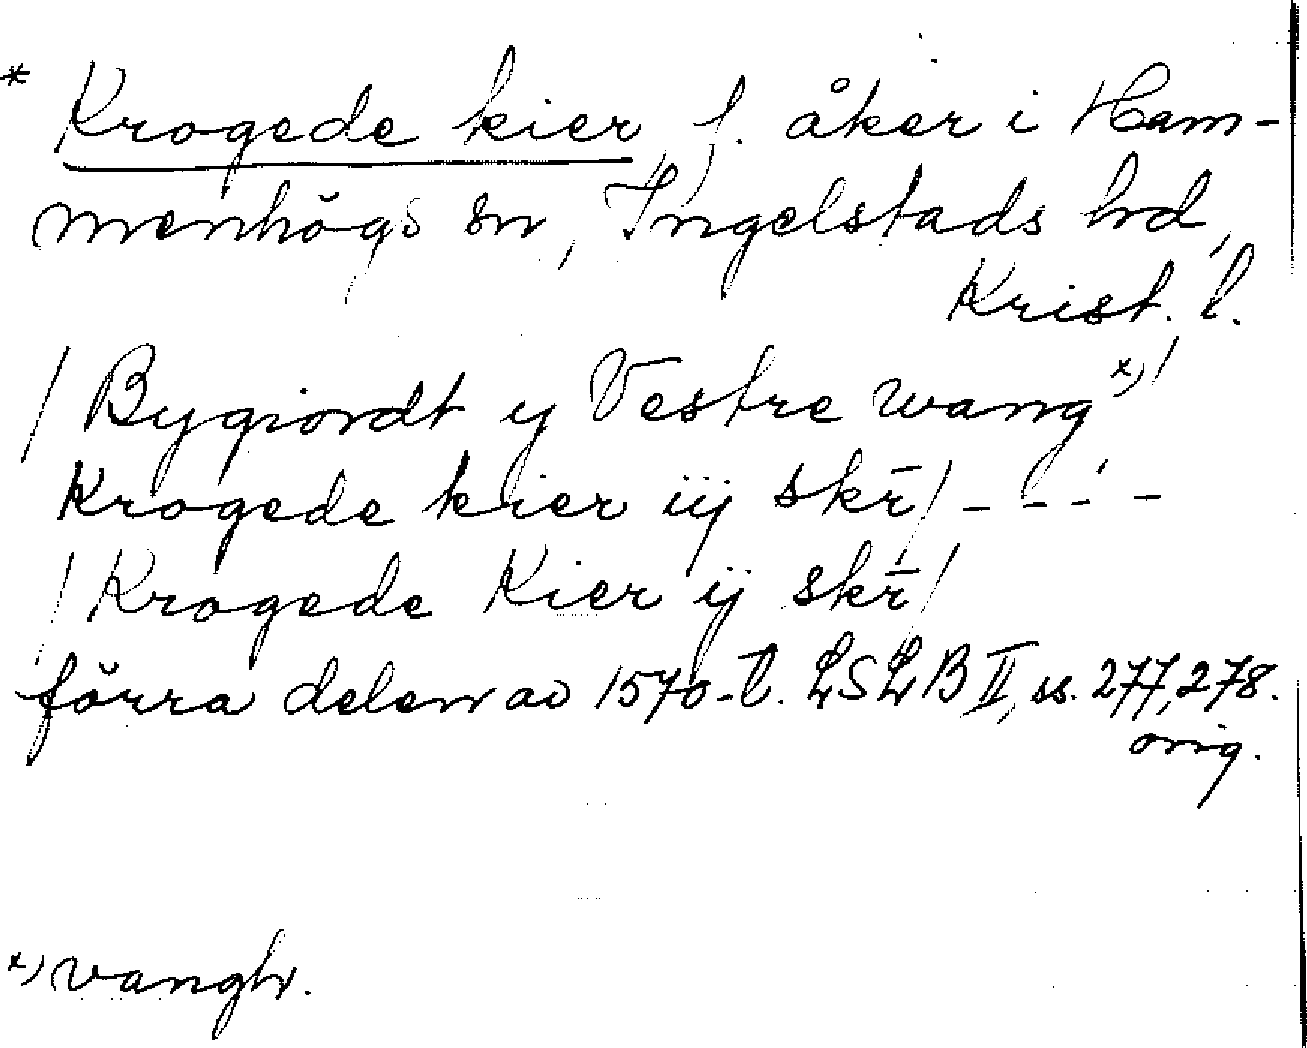 * Krogede kier, f. åker i Ham-
menhögs sn, Ingelstads hd,
Krist. l.
/ Bygiordt y Vestre wang x) /
Krogede kier iij skr̄ / - - - -
/ Krogede Kier ij skr̄ /
förra delen av 1570-t. LSLB II, ss. 277, 278.
orig.
x) vangh.